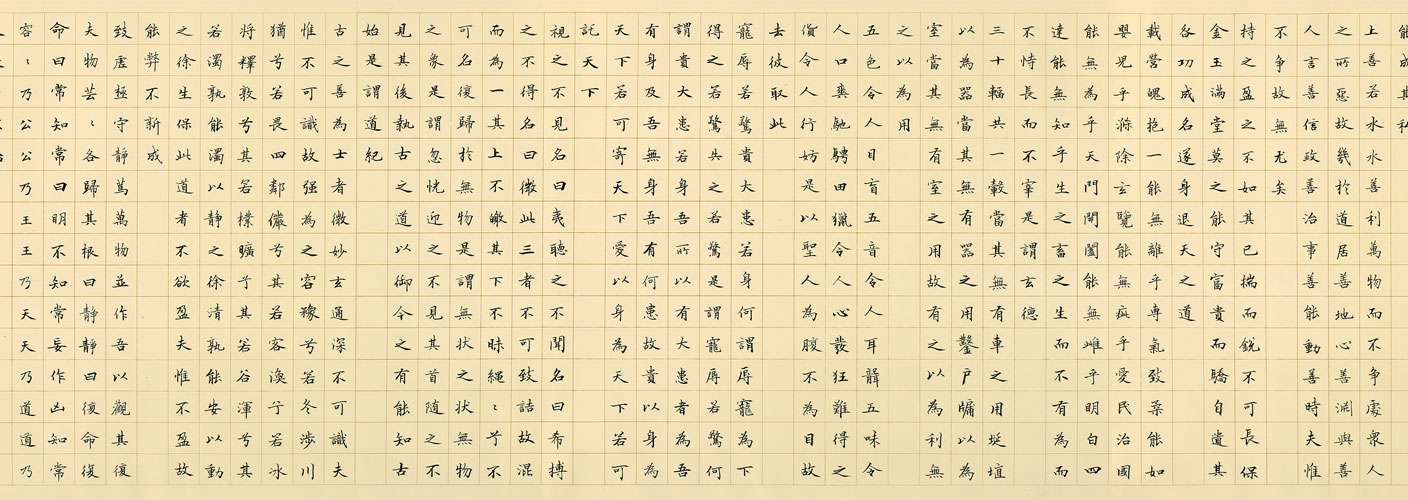 能成其私
上善若水水善利萬物而不争處衆人
之所惡故幾於道居善地心善淵與善
人言善信政善治事善能動善時夫惟
不争故無尤矣
持之盈之不如其已揣而銳不可長保
金玉滿堂莫之能守富貴而驕自遺其
各功成名遂身退天之道
載營魄抱一能無離乎専氣致柔能如
嬰兒乎滌除玄覽能無疵乎愛民治國
能無為乎天門開闔能無雌乎明白四
達能無知乎生之畜之生而不有為而
不恃長而不宰是謂玄德
三十輻共一轂當其無有車之用埏埴
以為器當其無有器之用鑿戶牖以為
室當其無有室之用故有之以為利無
之以為用
五色令人目盲五音令人耳聾五味令
人口爽馳騁田獵令人心發狂難得之
貨令人行妨是以聖人為腹不為目故
去彼取此
寵辱若驚貴大患若身何謂辱寵為下
得之若驚失之若驚是謂寵辱若驚何
謂貴大患若身吾所以有大患者為吾
有身及吾無身吾有何患故貴以身為
天下若可寄天下愛以身為天下若可
託天下
視之不見名曰夷聽之不聞名曰希搏
之不得名曰微此三者不可致詰故混
而為一其上不皦其下不昧繩〻兮不
可名復歸於無物是謂無狀之狀無物
之象是謂忽恍迎之不見其首随之不
見其後執古之道以御今之有能知古
始是謂道紀
古之善為士者微妙玄通深不可識夫
惟不可識故强為之容豫兮若冬渉川
猶兮若畏四鄰儼兮其若客渙兮若冰
將釋敦兮其若樸曠兮其若谷渾兮其
若濁孰能濁以靜之徐清孰能安以動
之徐生保此道者不欲盈夫惟不盈故
能弊不新成
致虛極守靜篤萬物並作吾以觀其復
夫物芸〻各歸其根曰靜靜曰復命復
命曰常知常曰明不知常妄作凶知常
容〻乃公公乃王王乃天天乃道道乃